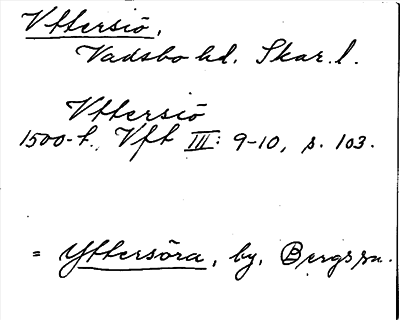 Yttersiö,
Vadsbo hd. Skar. l.
Yttersiö
1500-t., Vft III: 9-10, s. 103.
= Yttersöra, by, Bergs sn.